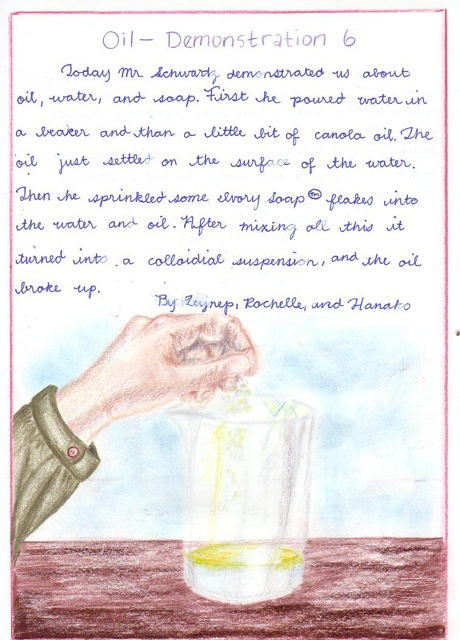 Oil - Demonstration 6
Today Mr. Schwartz demonstrated us about
oil, water, and soap. First he poured water in
a beaker and than a little bit of canola oil. The
oil just settled on the surface of the water.
Then he sprinkled some elvory soap™ flakes into
the water and oil. After mixing all this it
turned into a colloidial suspension, and the oil
broke up.
By Zeynep, Rochelle, and Hanako